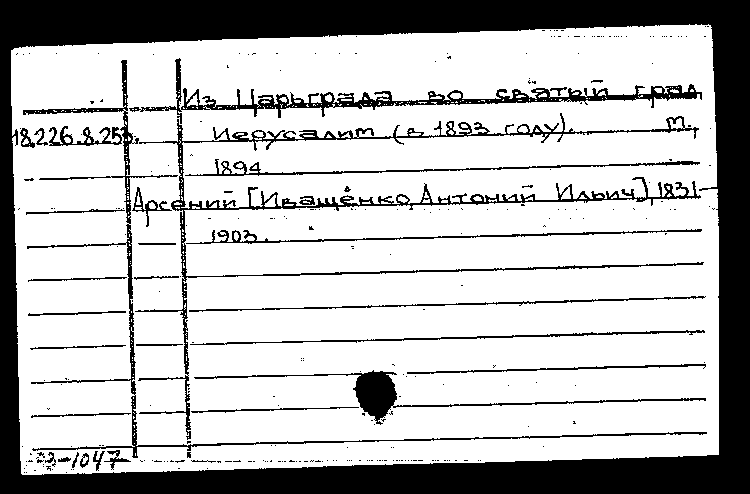 Из Царьграда во святый град
18.226.8.253. Иерусалим (в 1893 году). М.,
1894.
Арсений [Иващенко, Антоний Ильич], 1831-
1903.
-1047